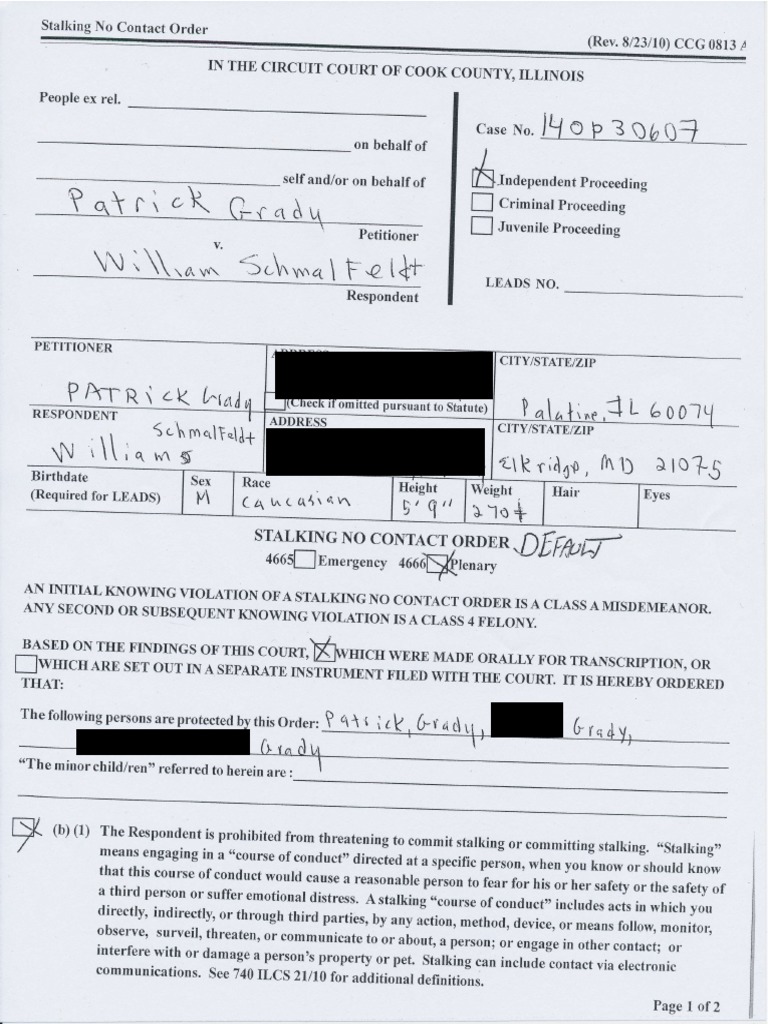 Stalking No Contact Order
(Rev. 8/23/10) CCG 0813 A
IN THE CIRCUIT COURT OF COOK COUNTY, ILLINOIS
People ex rel.
on behalf of
self and/or on behalf of
Patrick Grady
Petitioner
v.
William Schmalfeldt
Respondent
Case No. 14OP30607
Independent Proceeding
Criminal Proceeding
Juvenile Proceeding
LEADS NO.
PETITIONER
PATRICK Grady
(Check if omitted pursuant to Statute)
CITY/STATE/ZIP
Palatine, IL 60074
RESPONDENT
Schmalfeldt
Williams
ADDRESS
CITY/STATE/ZIP
Elkridge, MD 21075
Birthdate
(Required for LEADS)
Sex
M
Race
Caucasian
Height
5'9"
Weight
270#
Hair
Eyes
STALKING NO CONTACT ORDER DEFAULT
4665 Emergency 4666 Plenary
AN INITIAL KNOWING VIOLATION OF A STALKING NO CONTACT ORDER IS A CLASS A MISDEMEANOR.
ANY SECOND OR SUBSEQUENT KNOWING VIOLATION IS A CLASS 4 FELONY.
BASED ON THE FINDINGS OF THIS COURT, WHICH WERE MADE ORALLY FOR TRANSCRIPTION, OR
WHICH ARE SET OUT IN A SEPARATE INSTRUMENT FILED WITH THE COURT. IT IS HEREBY ORDERED
THAT:
The following persons are protected by this Order: Patrick, Grady, Grady,
Grady
"The minor child/ren" referred to herein are :
(b) (1) The Respondent is prohibited from threatening to commit stalking or committing stalking. "Stalking"
means engaging in a "course of conduct" directed at a specific person, when you know or should know
that this course of conduct would cause a reasonable person to fear for his or her safety or the safety of
a third person or suffer emotional distress. A stalking "course of conduct" includes acts in which you
directly, indirectly, or through third parties, by any action, method, device, or means follow, monitor,
observe, surveil, threaten, or communicate to or about, a person; or engage in other contact; or
interfere with or damage a person's property or pet. Stalking can include contact via electronic
communications. See 740 ILCS 21/10 for additional definitions.
Page 1 of 2